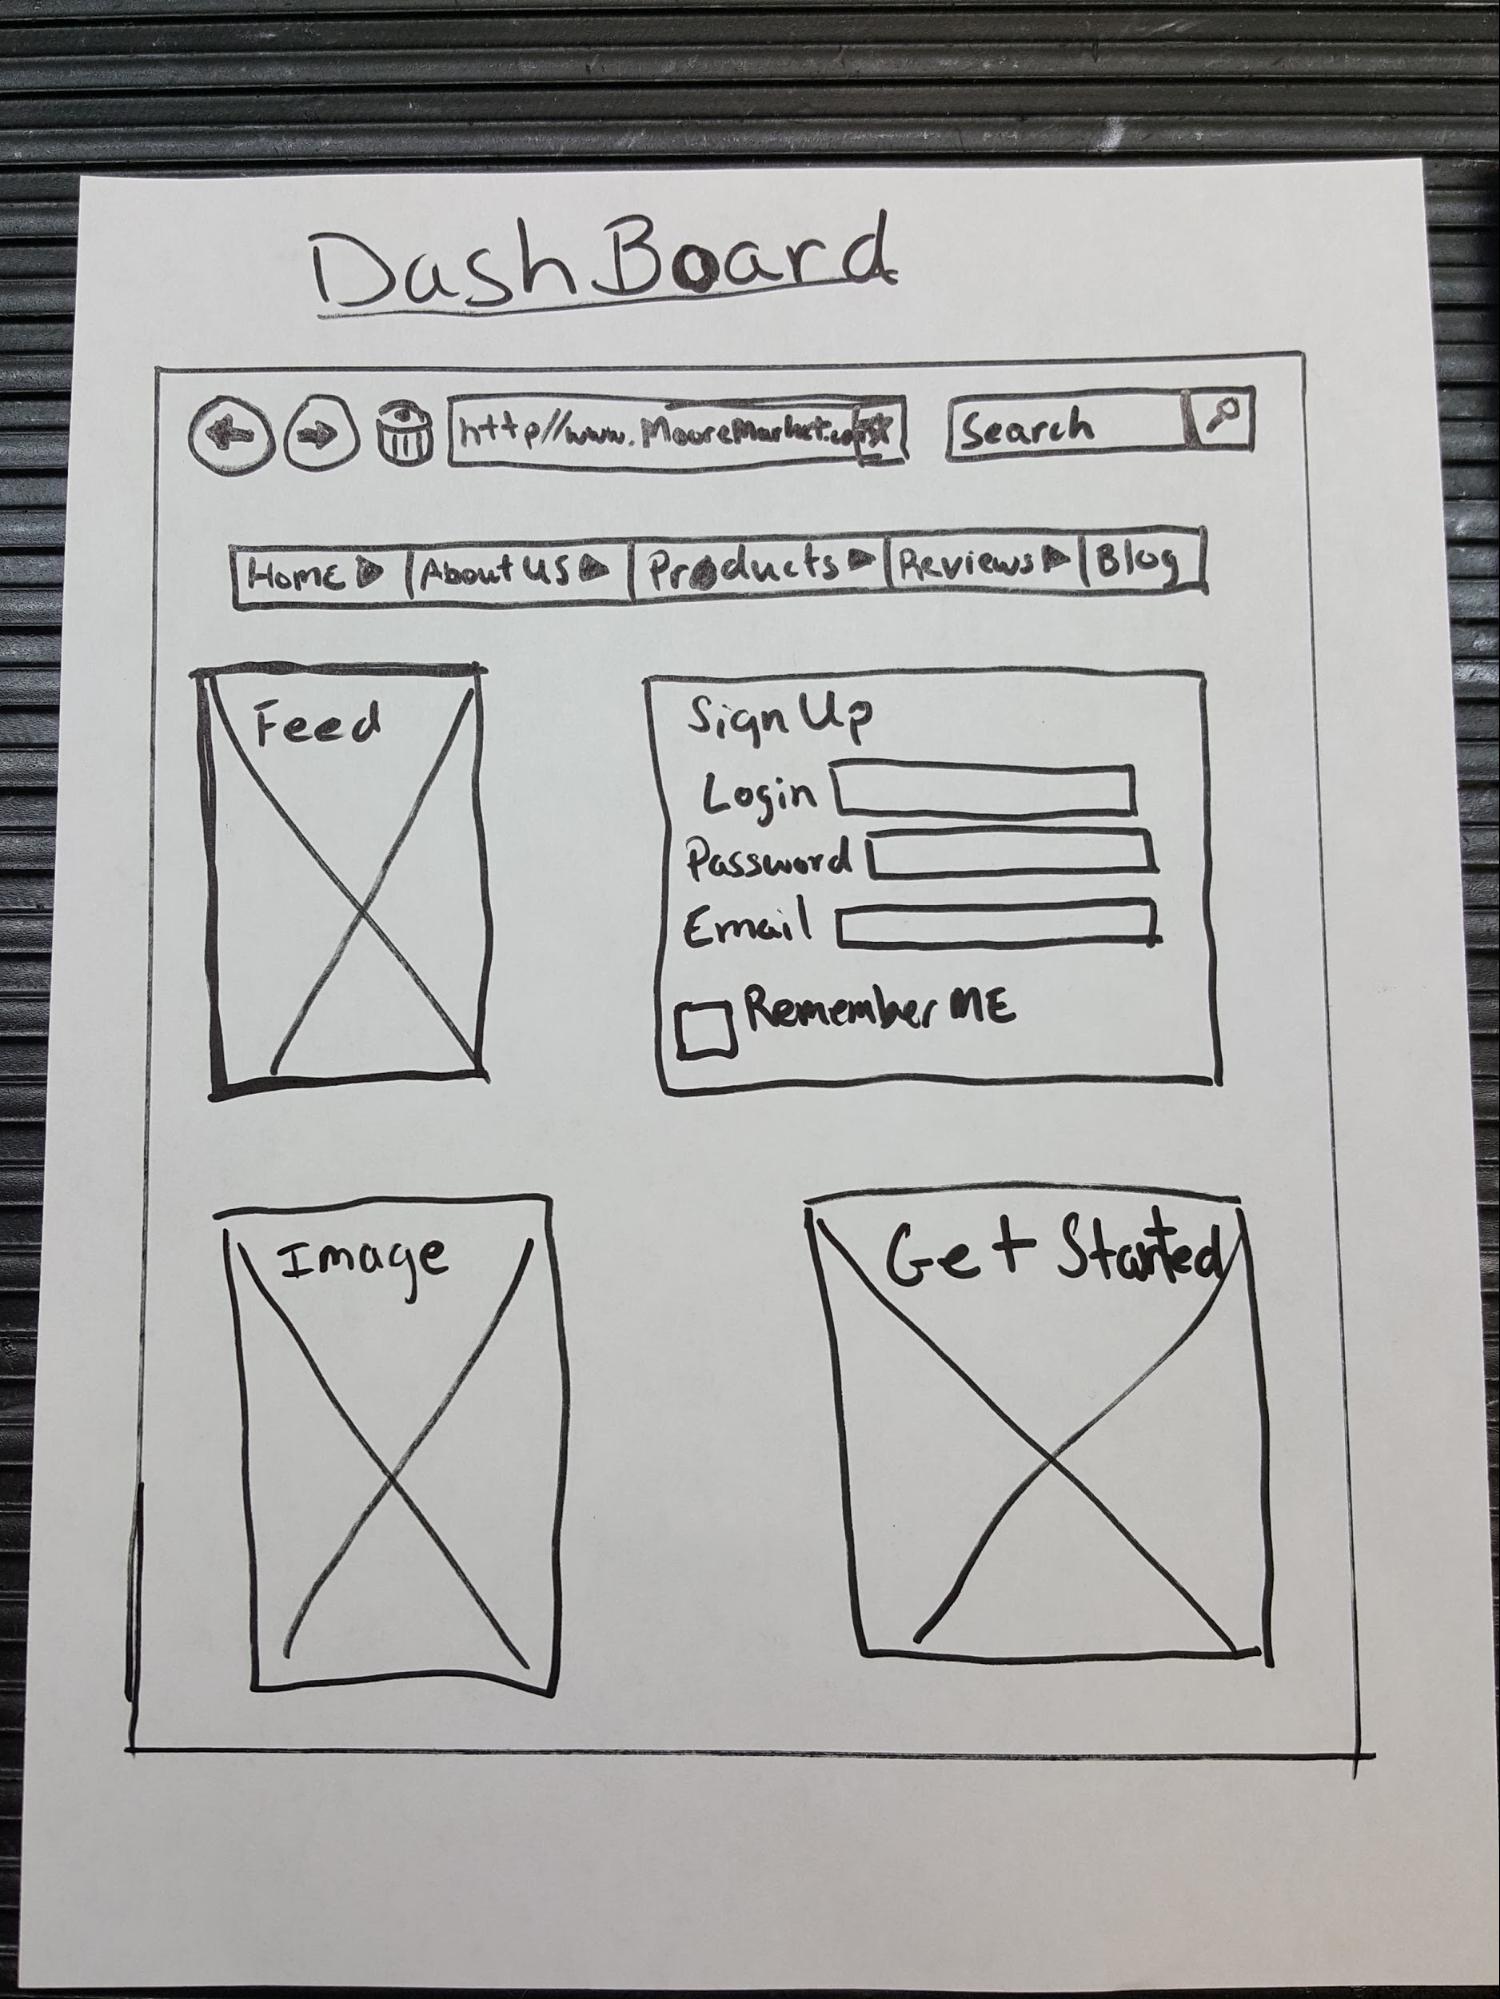 DashBoard
http//www.MooreMarket.com
Search
Home
About US
Products
Reviews
Blog
Feed
Sign Up
Login
Password
Email
Remember ME
Image
Get Started